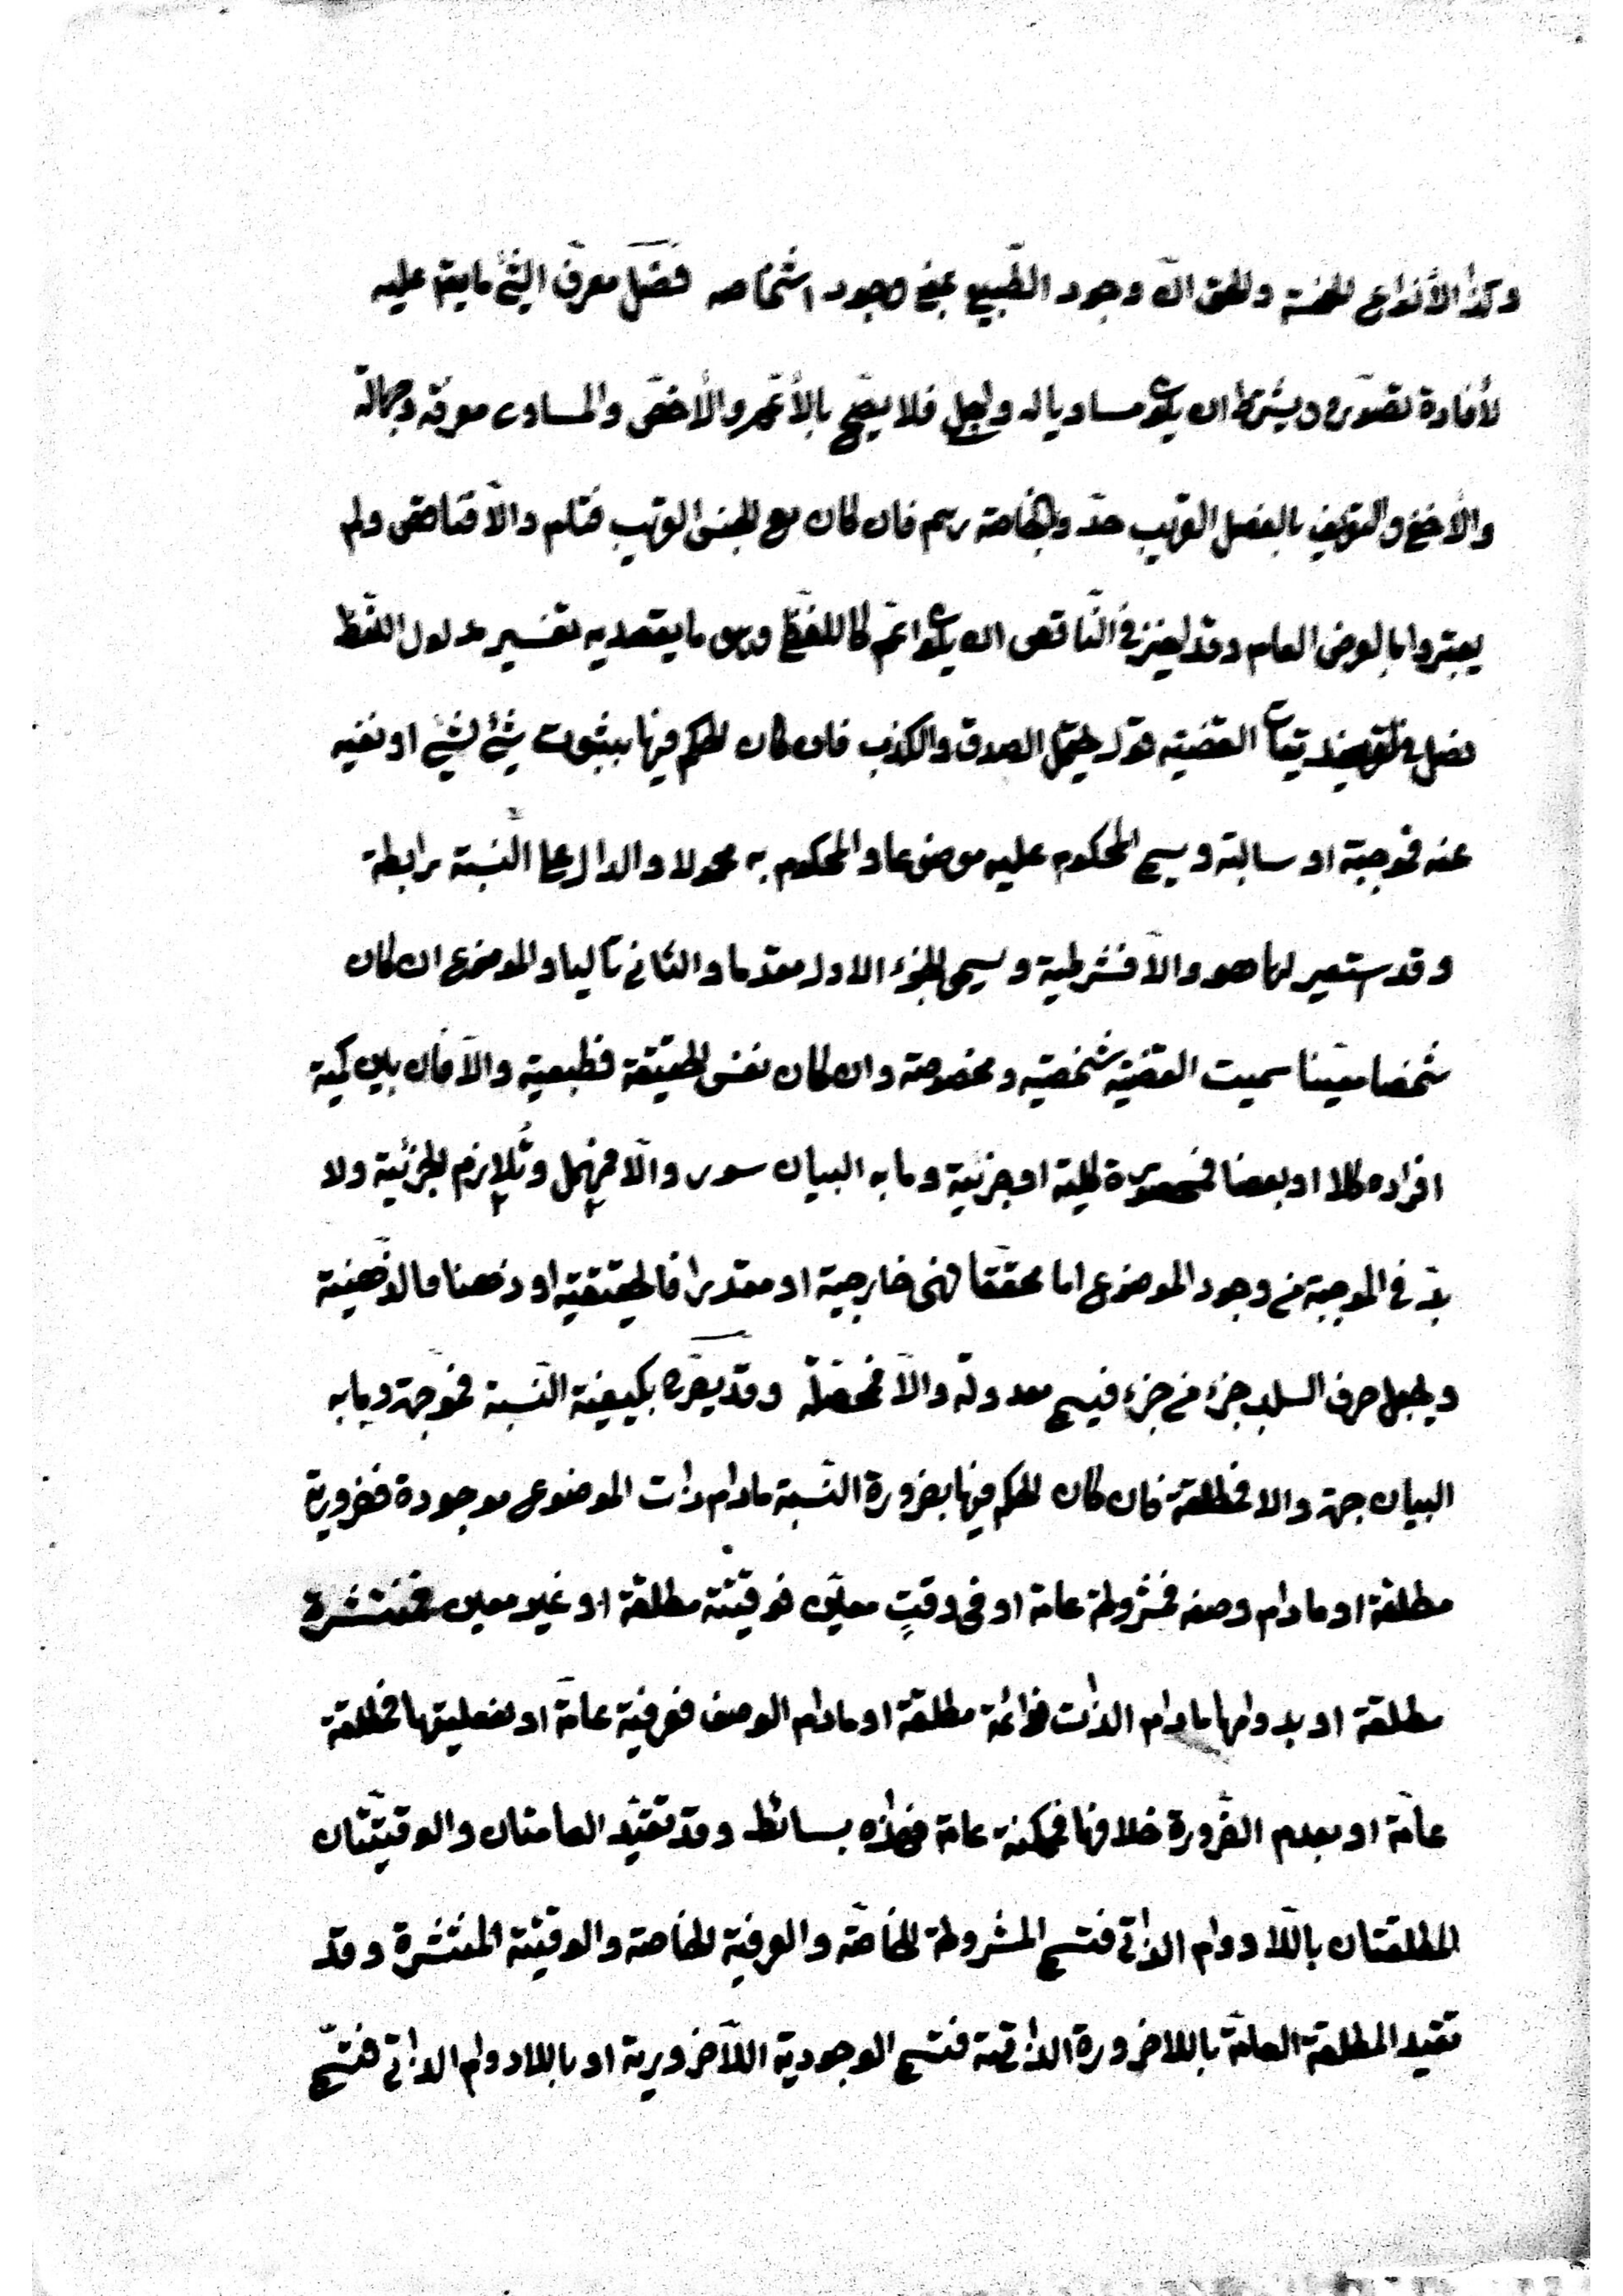 وكذا الأنواع الخمسة والحق انّ وجود الطّبيعي بمعنى وجود اشخاصه فصل معرّف الشّئ ما يقم عليه
لأفادة تصوّره ويشترط ان يكون مساويا له واجلى فلا يصّح بالأعّم والأخصّ والمساوى معرفة وجهالة
والأخفى والتعريف بالفصل القريب حدّ وبالخاصة رسم فان كان مع الجنس القريب فتام والّا فناقص ولم
يعتبروا بالعرض العام وقد اجيز فى النّاقص ان يكون اعمّ كاللفّظى وهو ما يقصد به تفسير مدلول اللفّظ
فصل فى التصديقات القضيّه قول يحتمل الصدق والكذب فان كان الحكم فيها بثبوت شئ لشئ او نفيه
عنه فموجبة او سالبة ويسمى المحكوم عليه موضوعا والمحكوم به محمولا والدال على النّسبة رابطة
وقد استعير لها هو والّا فشرطية ويسمى الجزء الاول مقدما والثانى تاليا والموضوع ان كان
شخصا معيّنا سميت القضيّه شخصيّه ومخصوصة وان كان نفس الحقيقة فطبعية والّا فان بين كمية
افراده كلا او بعضا فمحصورة كلية او جزئية وما به البيان سور والّا فمهمل وتلازم الجزئية ولا
بدّ فى الموجبة من وجود الموضوع اما محققّا فهى خارجية او مقدرا فالحقيقية او ذهنا فالذّهنية
ويجعل حرف السلب جزء من جزء فيسمى معدولة والّا فمحصّلة وقد يصرّح بكيفية النّسبة فموّجهة وما به
البيان جهة والا فمطلقة فان كان الحكم فيها بضرورة النّسبة مادام ذات الموضوع موجودة فضرورية
مطلقة او مادام وصفه فمشروطة عامة او فى وقتٍ معيّن فوقتيّة مطلقة او غير معين فمنتشرة
مطلقة او بدوامها مادام الذات فدائمة مطلقة او مادام الوصف فعرفية عامّة او بفعليتها فمطلقة
عامّة او بعدم الضّرورة خلافها فممكنة عامة فهذه بسائط وقد تقيّد العامتان والوقتيّتان
المطلقتان باللّا دوام الذاتى فتسمى المشروطة الخاصّة والعرفية الخاصة والوقتيّة المنتشرة وقد
تقيد المطلقة العامّة باللاضرورة الذاتية فتسمى الوجودية اللّاضرويرية او باللادوام الذاتى فتسّمى